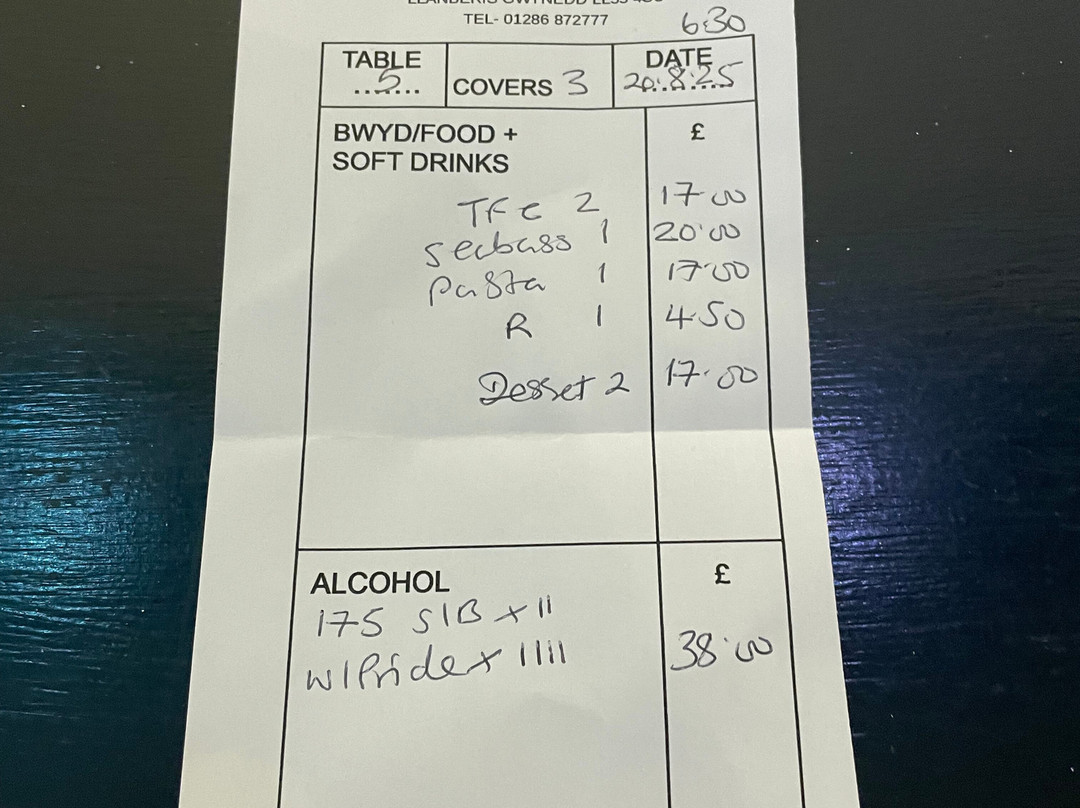 TEL- 01286 872777
6:30
TABLE 5
COVERS 3
DATE 20.8.25
BWYD/FOOD + SOFT DRINKS £
TFC 2 17.00
seabass 1 20.00
pasta 1 17.00
R 1 4.50
Desset 2 17.00
ALCOHOL £
175 S/B x II
W/Pride x IIII 38.00